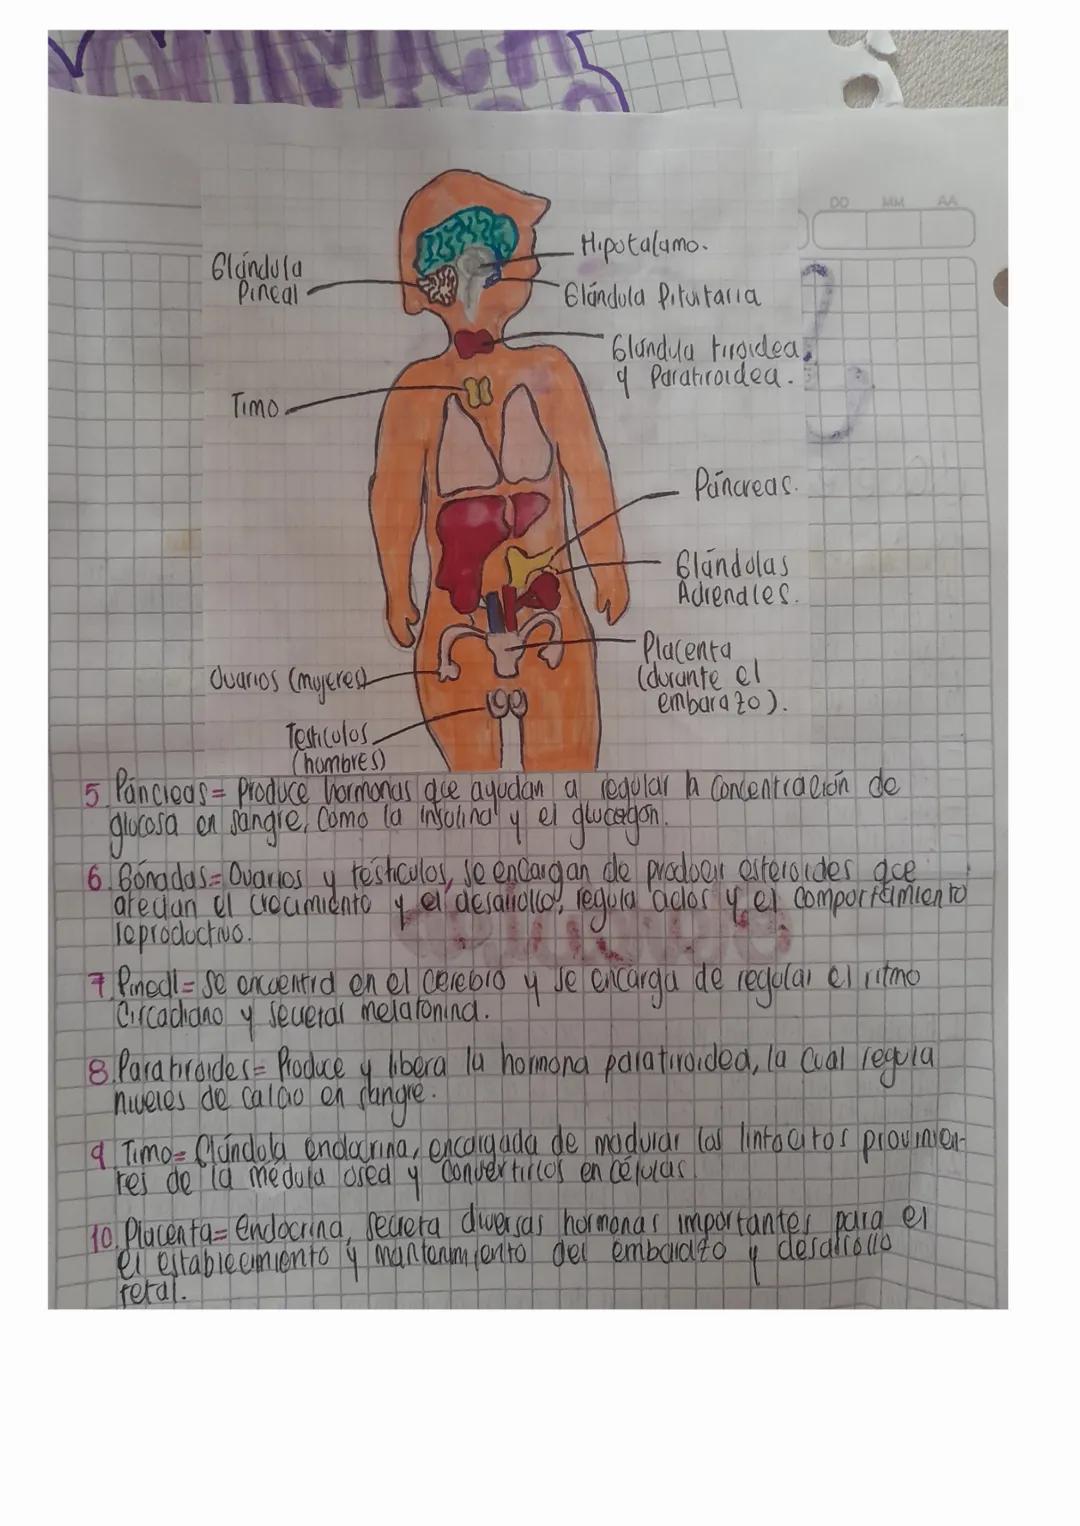 DD MM AA
Glándula
Pineal
Hipotalamo.
Glándula Pituitaria
Glandula tiroidea
y Paratiroidea.
Timo
Páncreas.
Glándulas
Adrenales.
Placenta
(durante el
embarazo).
Ovarios (mujeres)
Testiculos
(hombres)
5 Páncreas= Produce hormonas que ayudan a regular la concentración de
glucosa en sangre, como la insulina y el glucagon.
6 Gónadas= Ovarios y testiculos, se encargan de producir esteroides que
afectan el crecimiento y el desarrollo, regula ciclos y el comportamiento
reproductivo.
7 Pineal= Se encuentra en el cerebro y se encarga de regular el ritmo
Circadiano y secretar melatonina.
8 Paratiroides= Produce y libera la hormona paratiroidea, la cual regula
niveles de calcio en sangre.
9 Timo= Glándula endocrina, encargada de madurar los linfocitos provinien-
tes de la médula osea y convertirlos en células.
10. Placenta= Endocrina, Secreta diversas hormonas importantes para el
el establecimiento y mantenimiento del embarazo y desarrollo
fetal.